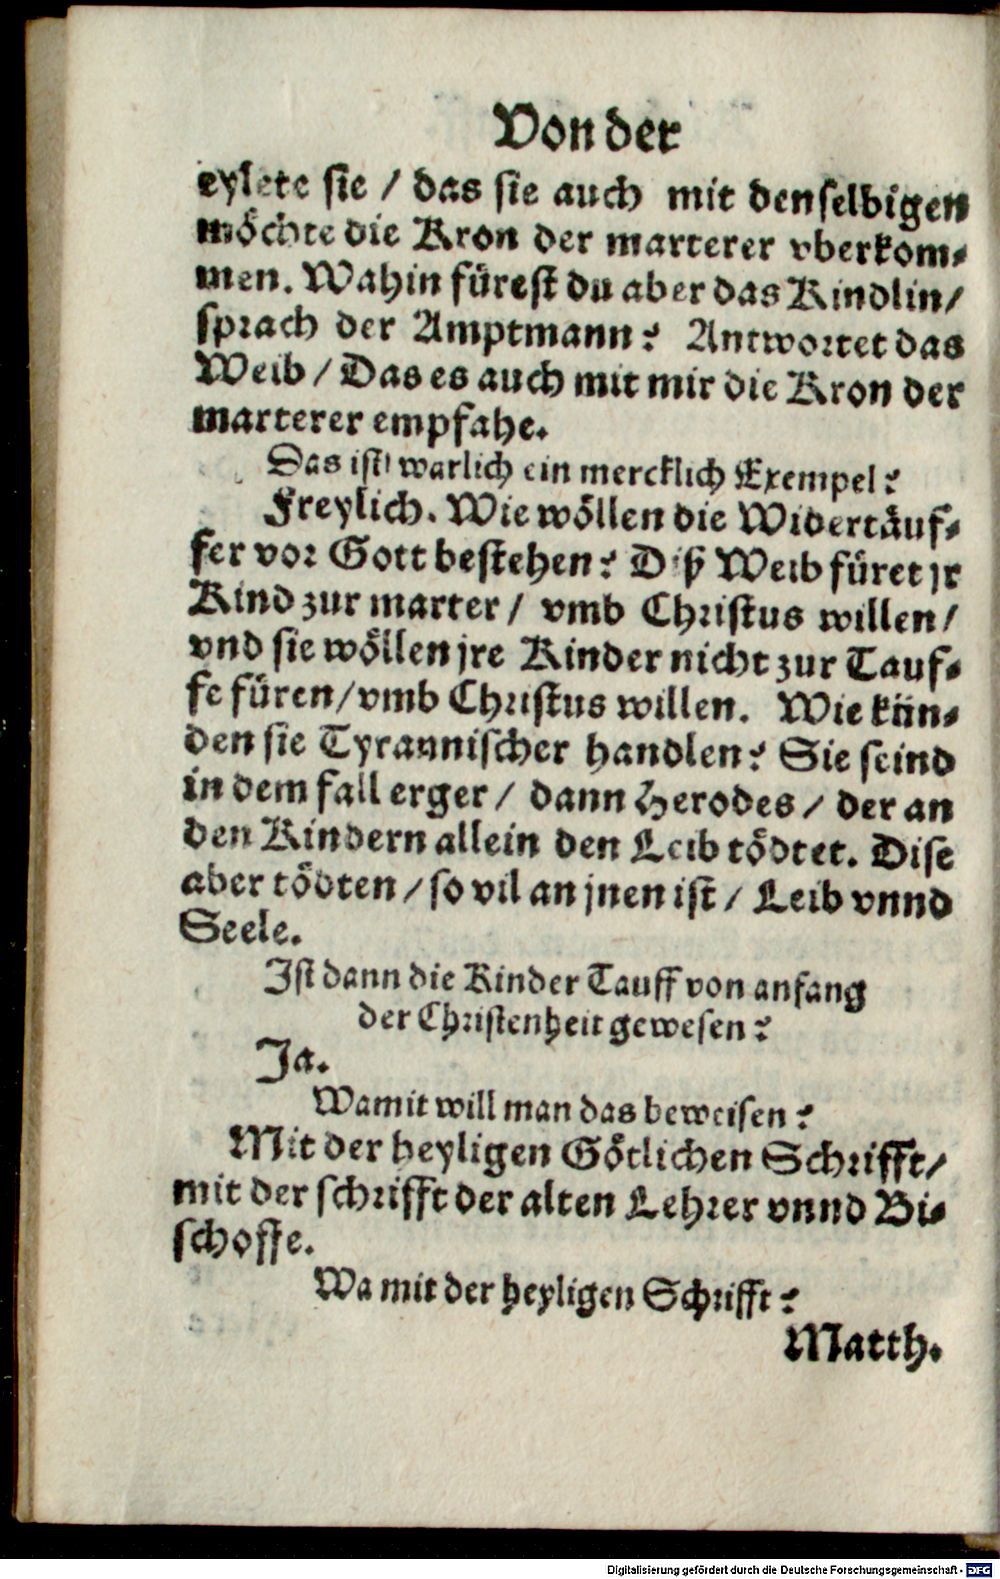 Von der
eylete sie / das sie auch mit denselbigen
möchte die Kron der marterer vberkom⸗
men. Wahin fürest du aber das Kindlin/
sprach der Amptmann? Antwortet das
Weib / Das es auch mit mir die Kron der
marterer empfahe.
Das ist warlich ein mercklich Exempel?
Freylich. Wie wöllen die Widertäuf⸗
fer vor Gott bestehen? Diß Weib füret jr
Kind zur marter / vmb Christus willen /
vnd sie wöllen jre Kinder nicht zur Tauf⸗
fe füren / vmb Christus willen. Wie kün⸗
den sie Tyrannischer handlen? Sie seind
in dem fall erger / dann Herodes / der an
den Kindern allein den Leib tödtet. Dise
aber tödten / so vil an jnen ist / Leib vnnd
Seele.
Ist dann die Kinder Tauff von anfang
der Christenheit gewesen?
Ja.
Wamit will man das beweisen?
Mit der heyligen Götlichen Schrifft /
mit der schrifft der alten Lehrer vnnd Bi⸗
schoffe.
Wa mit der heyligen Schrifft?
Matth.
Digitalisierung gefördert durch die Deutsche Forschungsgemeinschaft - DFG